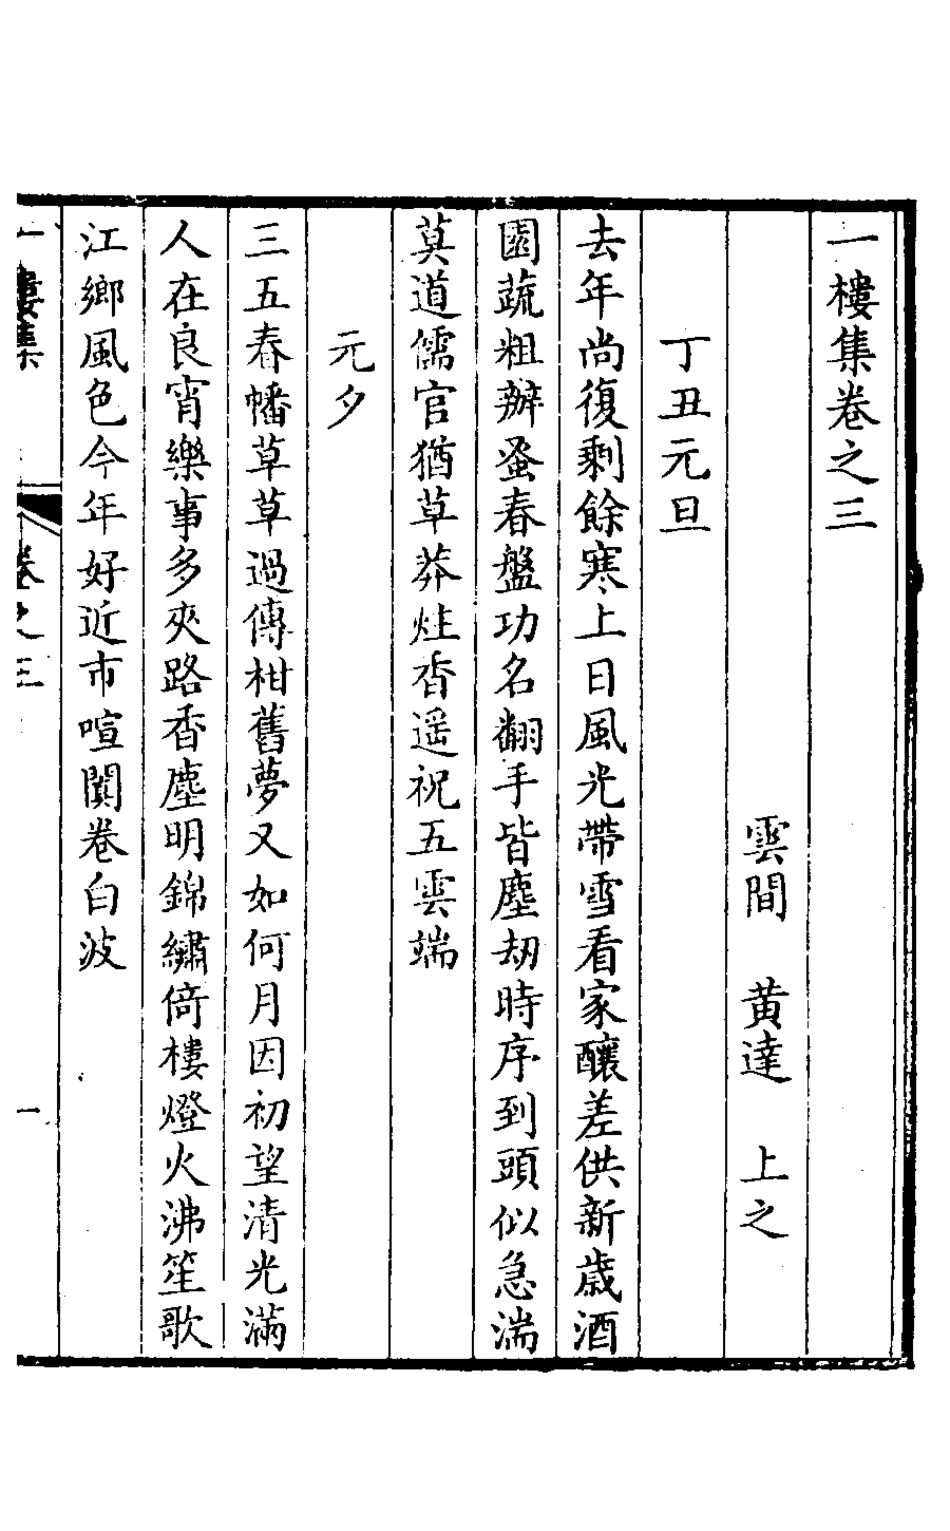 一樓集卷之三
雲間　黃達　上之
丁丑元旦
去年尚復剩餘寒上日風光帶雪看家釀差供新歲酒
園蔬粗辦蚤春盤功名翻手皆塵刧時序到頭似急湍
莫道儒官猶草莽炷香遥祝五雲端
元夕
三五春幡草草過傳柑舊夢又如何月因初望清光滿
人在良宵樂事多夾路香塵明錦繡倚樓燈火沸笙歌
江鄉風色今年好近市喧闐卷白波
一樓集　卷之三　一